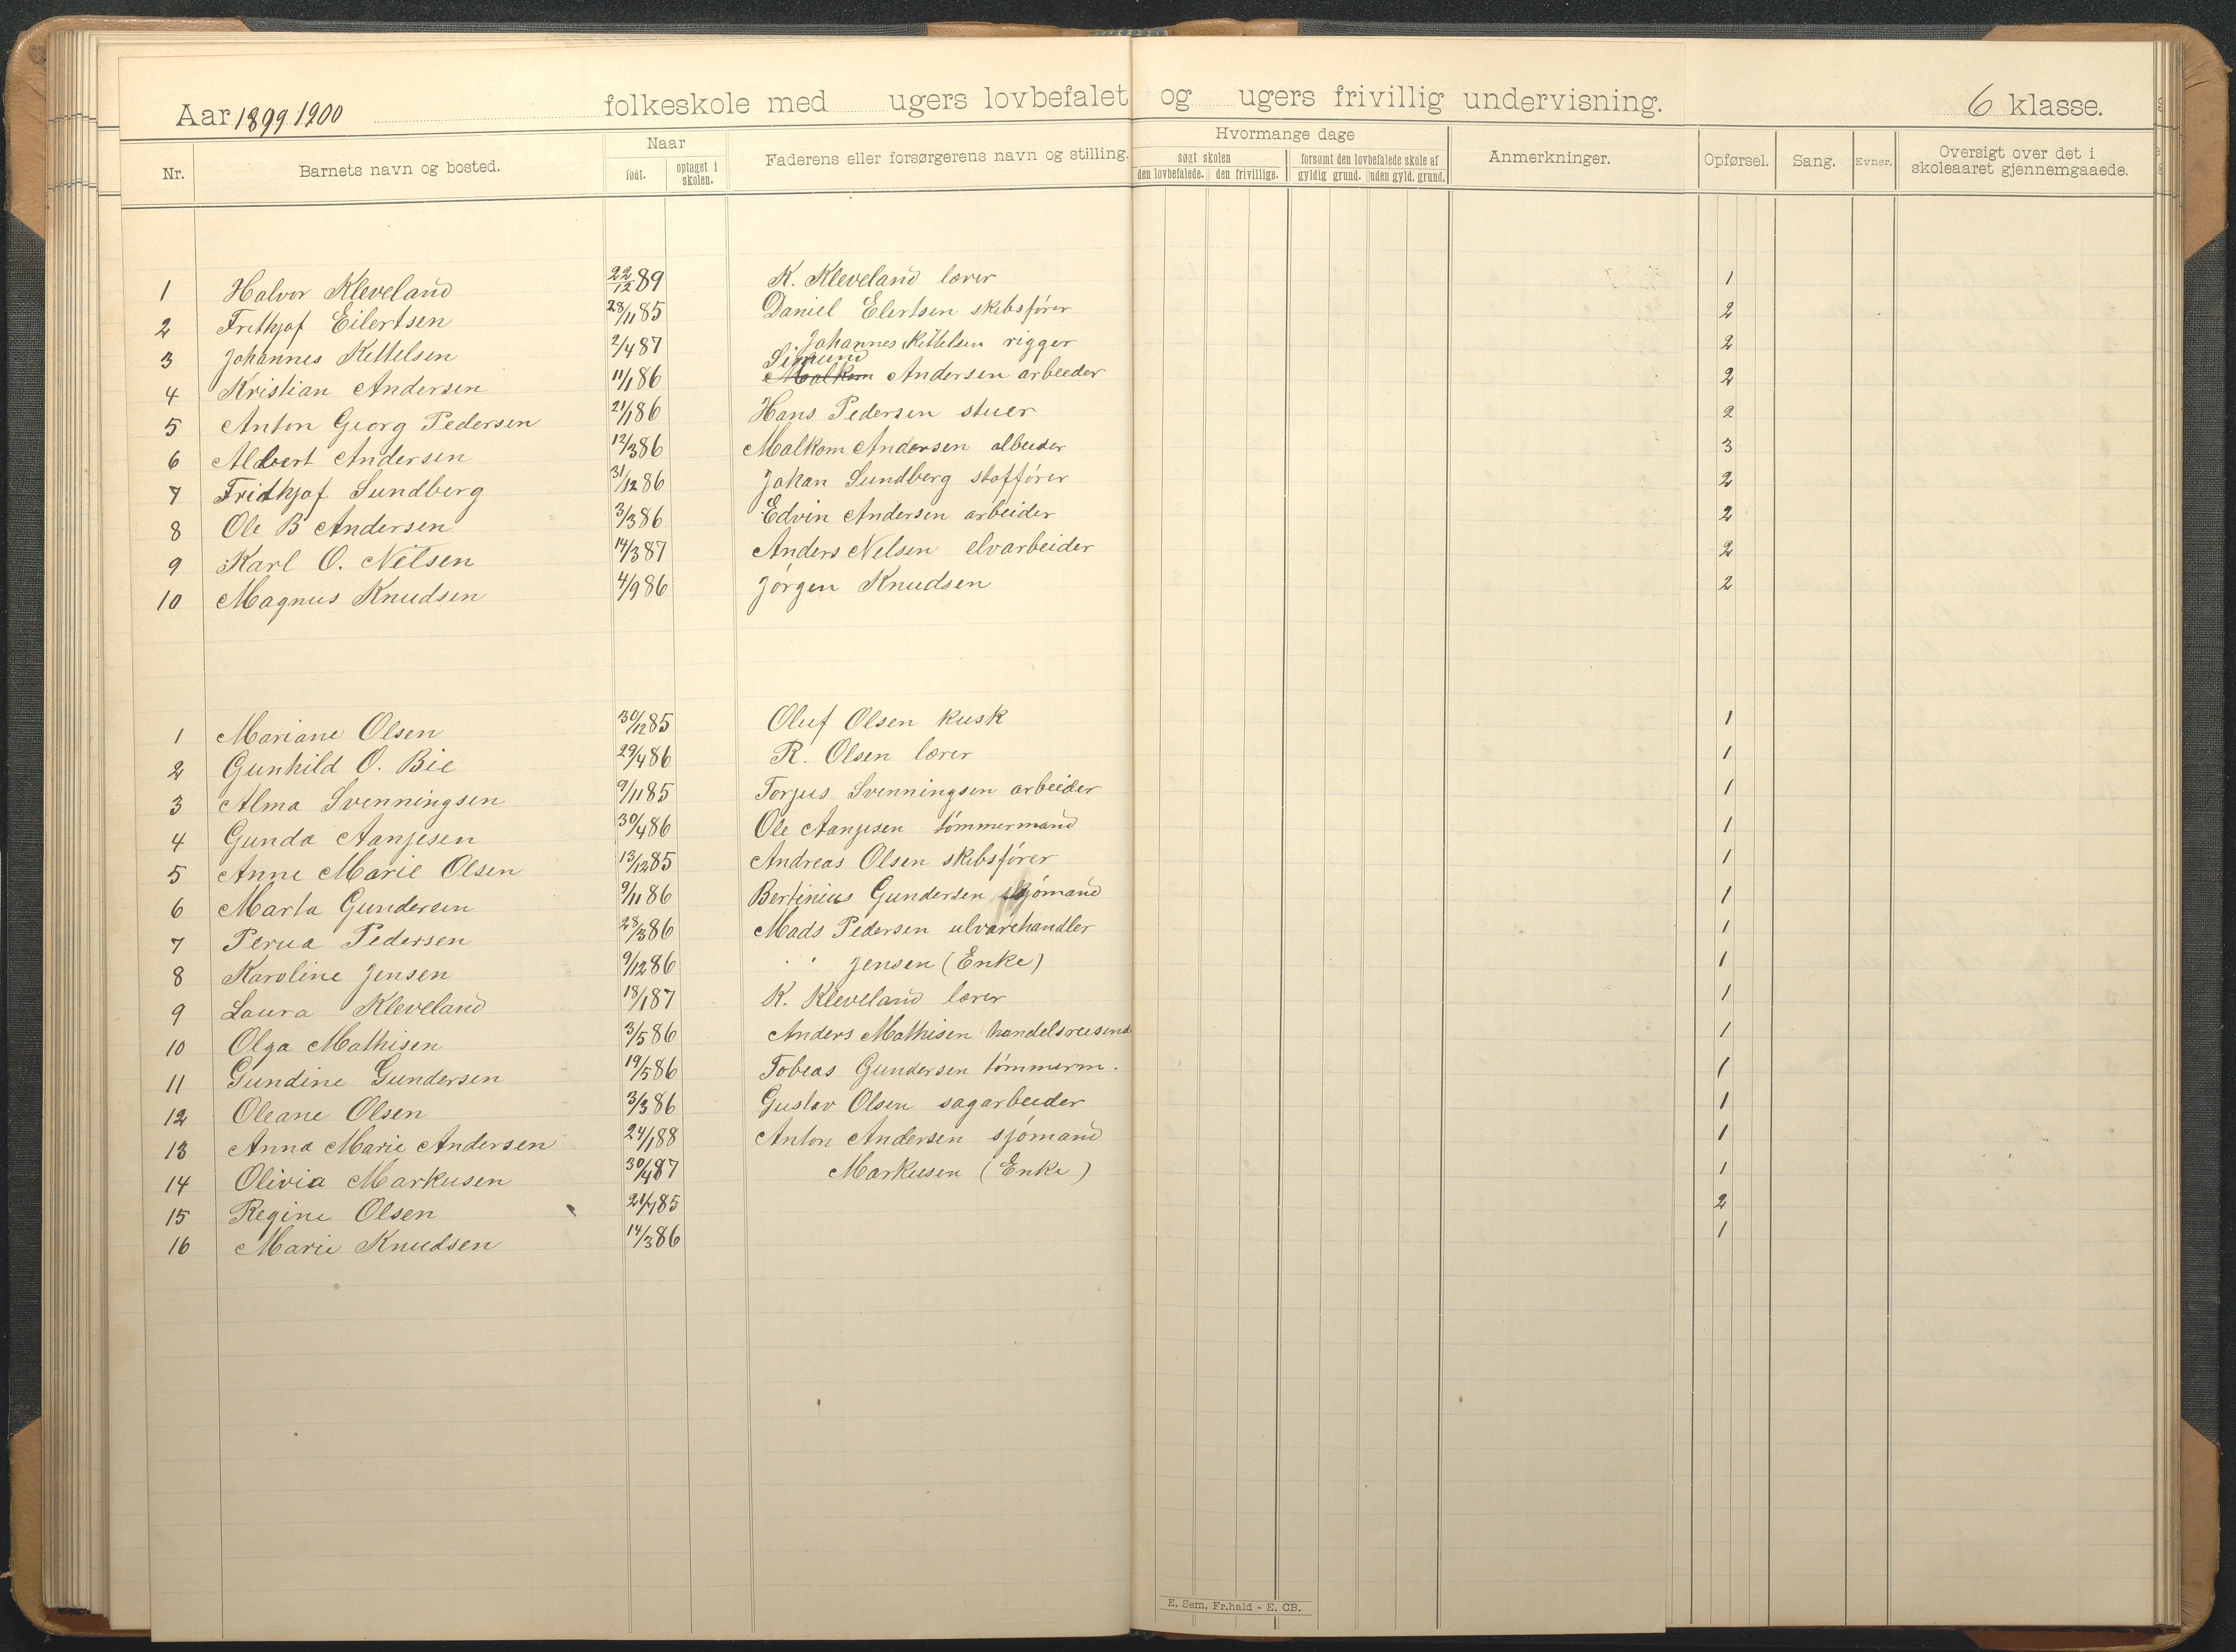 Aar 1899 1900 folkeskole med ugers lovbefalet og ugers frivillig undervisning. 6 klasse.
Nr. Barnets navn og bosted. Naar født. optaget i skolen. Faderens eller forsørgerens navn og stilling. Hvormange dage søgt skolen den lovbefalede. den frivillige. forsømt den lovbefalede skole af gyldig grund. uden gyld. grund. Anmerkninger. Opførsel. Sang. Evner. Oversigt over det i skoleaaret gjennemgaaede.
1 Halvor Kleveland 22/12 89 K. Kleveland lærer 1
2 Frithjof Eilertsen 28/11 85 Daniel Elertsen skibsfører 2
3 Johannes Kittelsen 2/4 87 Johannes Kittelsen rigger 2
4 Kristian Andersen 11/1 86 Simund Malkom Andersen arbeider 2
5 Anton Georg Pedersen 21/1 86 Hans Pedersen stuer 2
6 Albert Andersen 12/3 86 Malkom Andersen albeider 3
7 Fridthjof Sundberg 31/12 86 Johan Sundberg stoffører 2
8 Ole B Andersen 3/3 86 Edvin Andersen arbeider 2
9 Karl O. Nilsen 14/3 87 Anders Nelsen elvarbeider 2
10 Magnus Knudsen 4/9 86 Jørgen Knudsen 2
1 Mariane Olsen 30/12 85 Oluf Olsen kusk 1
2 Gunhild O. Bie 29/4 86 R. Olsen lærer 1
3 Alma Svenningsen 9/11 85 Torjus Svenningsen arbeider 1
4 Gunda Aanjesen 30/4 86 Ole Aanjesen tømmermand 1
5 Anne Marie Olsen 13/12 85 Andreas Olsen skibsfører 1
6 Marta Gundersen 9/11 86 Bertinius Gundersen sjømand 1
7 Perua Pedersen 28/3 86 Mads Pedersen ulvarehandler 1
8 Karoline Jensen 9/12 86 " Jensen (Enke) 1
9 Laura Kleveland 18/1 87 K. Kleveland lærer 1
10 Olga Mathisen 3/5 86 Anders Mathisen handelsreisend 1
11 Gundine Gundersen 19/5 86 Tobeas Gundersen tømmerm. 1
12 Oleane Olsen 3/3 86 Gustav Olsen sagarbeider 1
13 Anna Marie Andersen 24/1 88 Anton Andersen sjømand 1
14 Olivia Markusen 30/4 87 Markusen (Enke) 1
15 Regine Olsen 85 2
16 Marie Knudsen 14/3 86 1
E. Sem, Fr.hald - E. CB.